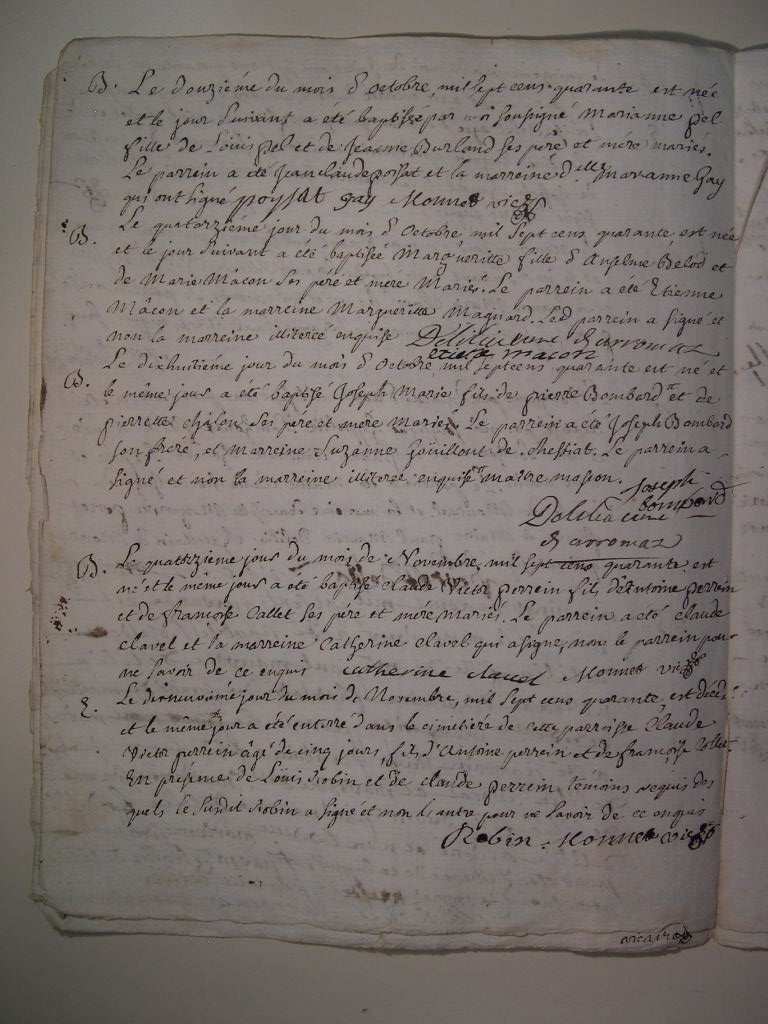 B. Le douziéme du mois d'octobre, mil sept cens quarante est née
et le jour suivant a été baptisée par moi soussigné Marianne pel
fille de Loüis pel et de Jeanne Burland ses pére et mere mariés.
Le parrein a été Jean claude poysat et la marreine d.elle marianne Gay
qui ont signé poysat gay Monnet vic.
B. Le quatorziéme jour du mois d'octobre mil sept cens quarante, est née
et le jour suivant a été baptisée Margueritte fille d'Anselme Belod et
de Marie Mâcon ses pére et mere Mariés. Le parrein a eté Etienne
Mâcon et la marreine Margueritte Maguard. Led parrein a signé et
non la marreine illiterée enquise
etiene macon
B. Le dixhuitiéme jour du mois d'octobre mil septcens quarante est né et
le même jour a été baptisé Joseph Marie fils de pierre Bombard et de
pierrette chalon ses pére et mere Mariés. Le parrein a été Joseph Bombard
son frere, et marreine Suzanne Goüillont de chessiat. Le parrein a
signé et non la marreine illiterée enquise maître masson.
Joseph
bombard
B. Le quattorzieme jour du mois de Novembre, mil sept cens quarante, est
né et le même jour a été baptisé Claude Victor perrein fils d'Antoine perrein
et de françoise Collet ses pére et mére Mariés. Le parrein a été claude
clavel et la marreine Catherine clavel qui a signe, non le parrein pour
ne savoir de ce enquis catherine clavel Monnet vic.
E. Le dixneuviéme jour du mois de Novembre, mil sept cens quarante, est décédé
et le même jour a été enterré dans le cimetiére de cette parroisse Claude
Victor perrein âgé de cinq jours, fils d'Antoine perrein et de françoise Collet.
En présence de Loüis Robin et de claude perrein temoins requis des
quels le susdit Robin a signé et non l'autre pour ne savoir de ce enquis
Robin Monnet vic.